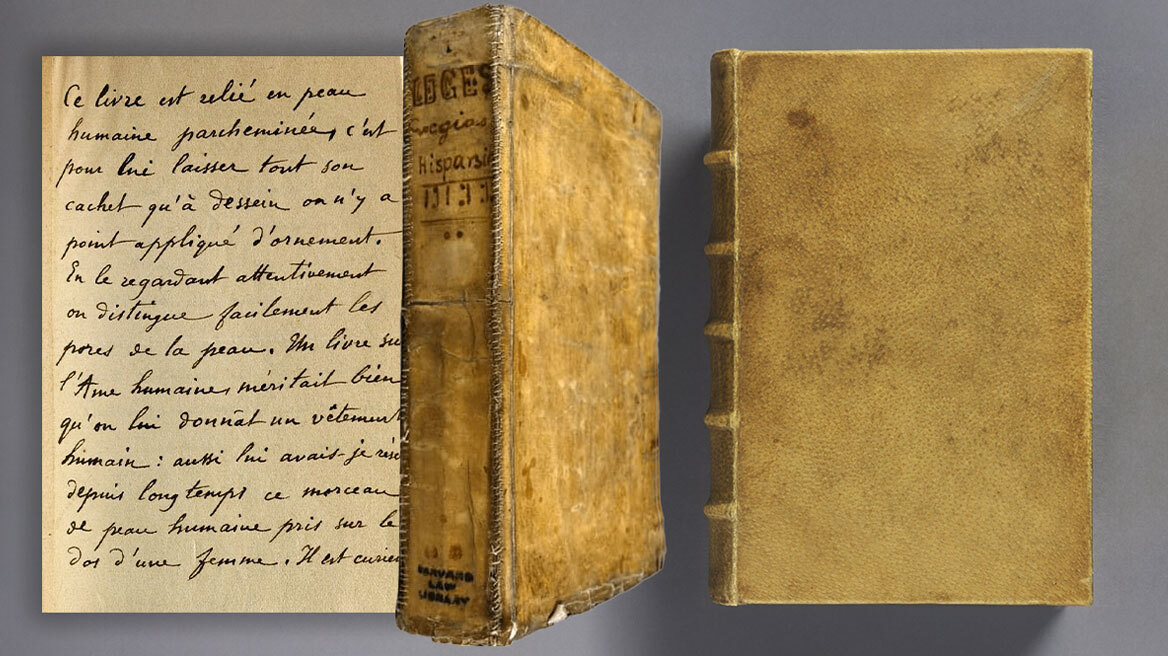 Ce livre est relié en peau
humaine parcheminée, c'est
pour lui laisser tout son
cachet qu'à dessein on n'y a
point appliqué d'ornement.
En le regardant attentivement
on distingue facilement les
pores de la peau. Un livre su
l'Ame humaine, méritait bien
qu'on lui donnât un vêtement
humain : aussi lui avais-je rés
depuis longtemps ce morceau
de peau humaine pris sur le
dos d'une femme. Il est curie
LEGES
Hispani
HARVARD
LAW
LIBRARY